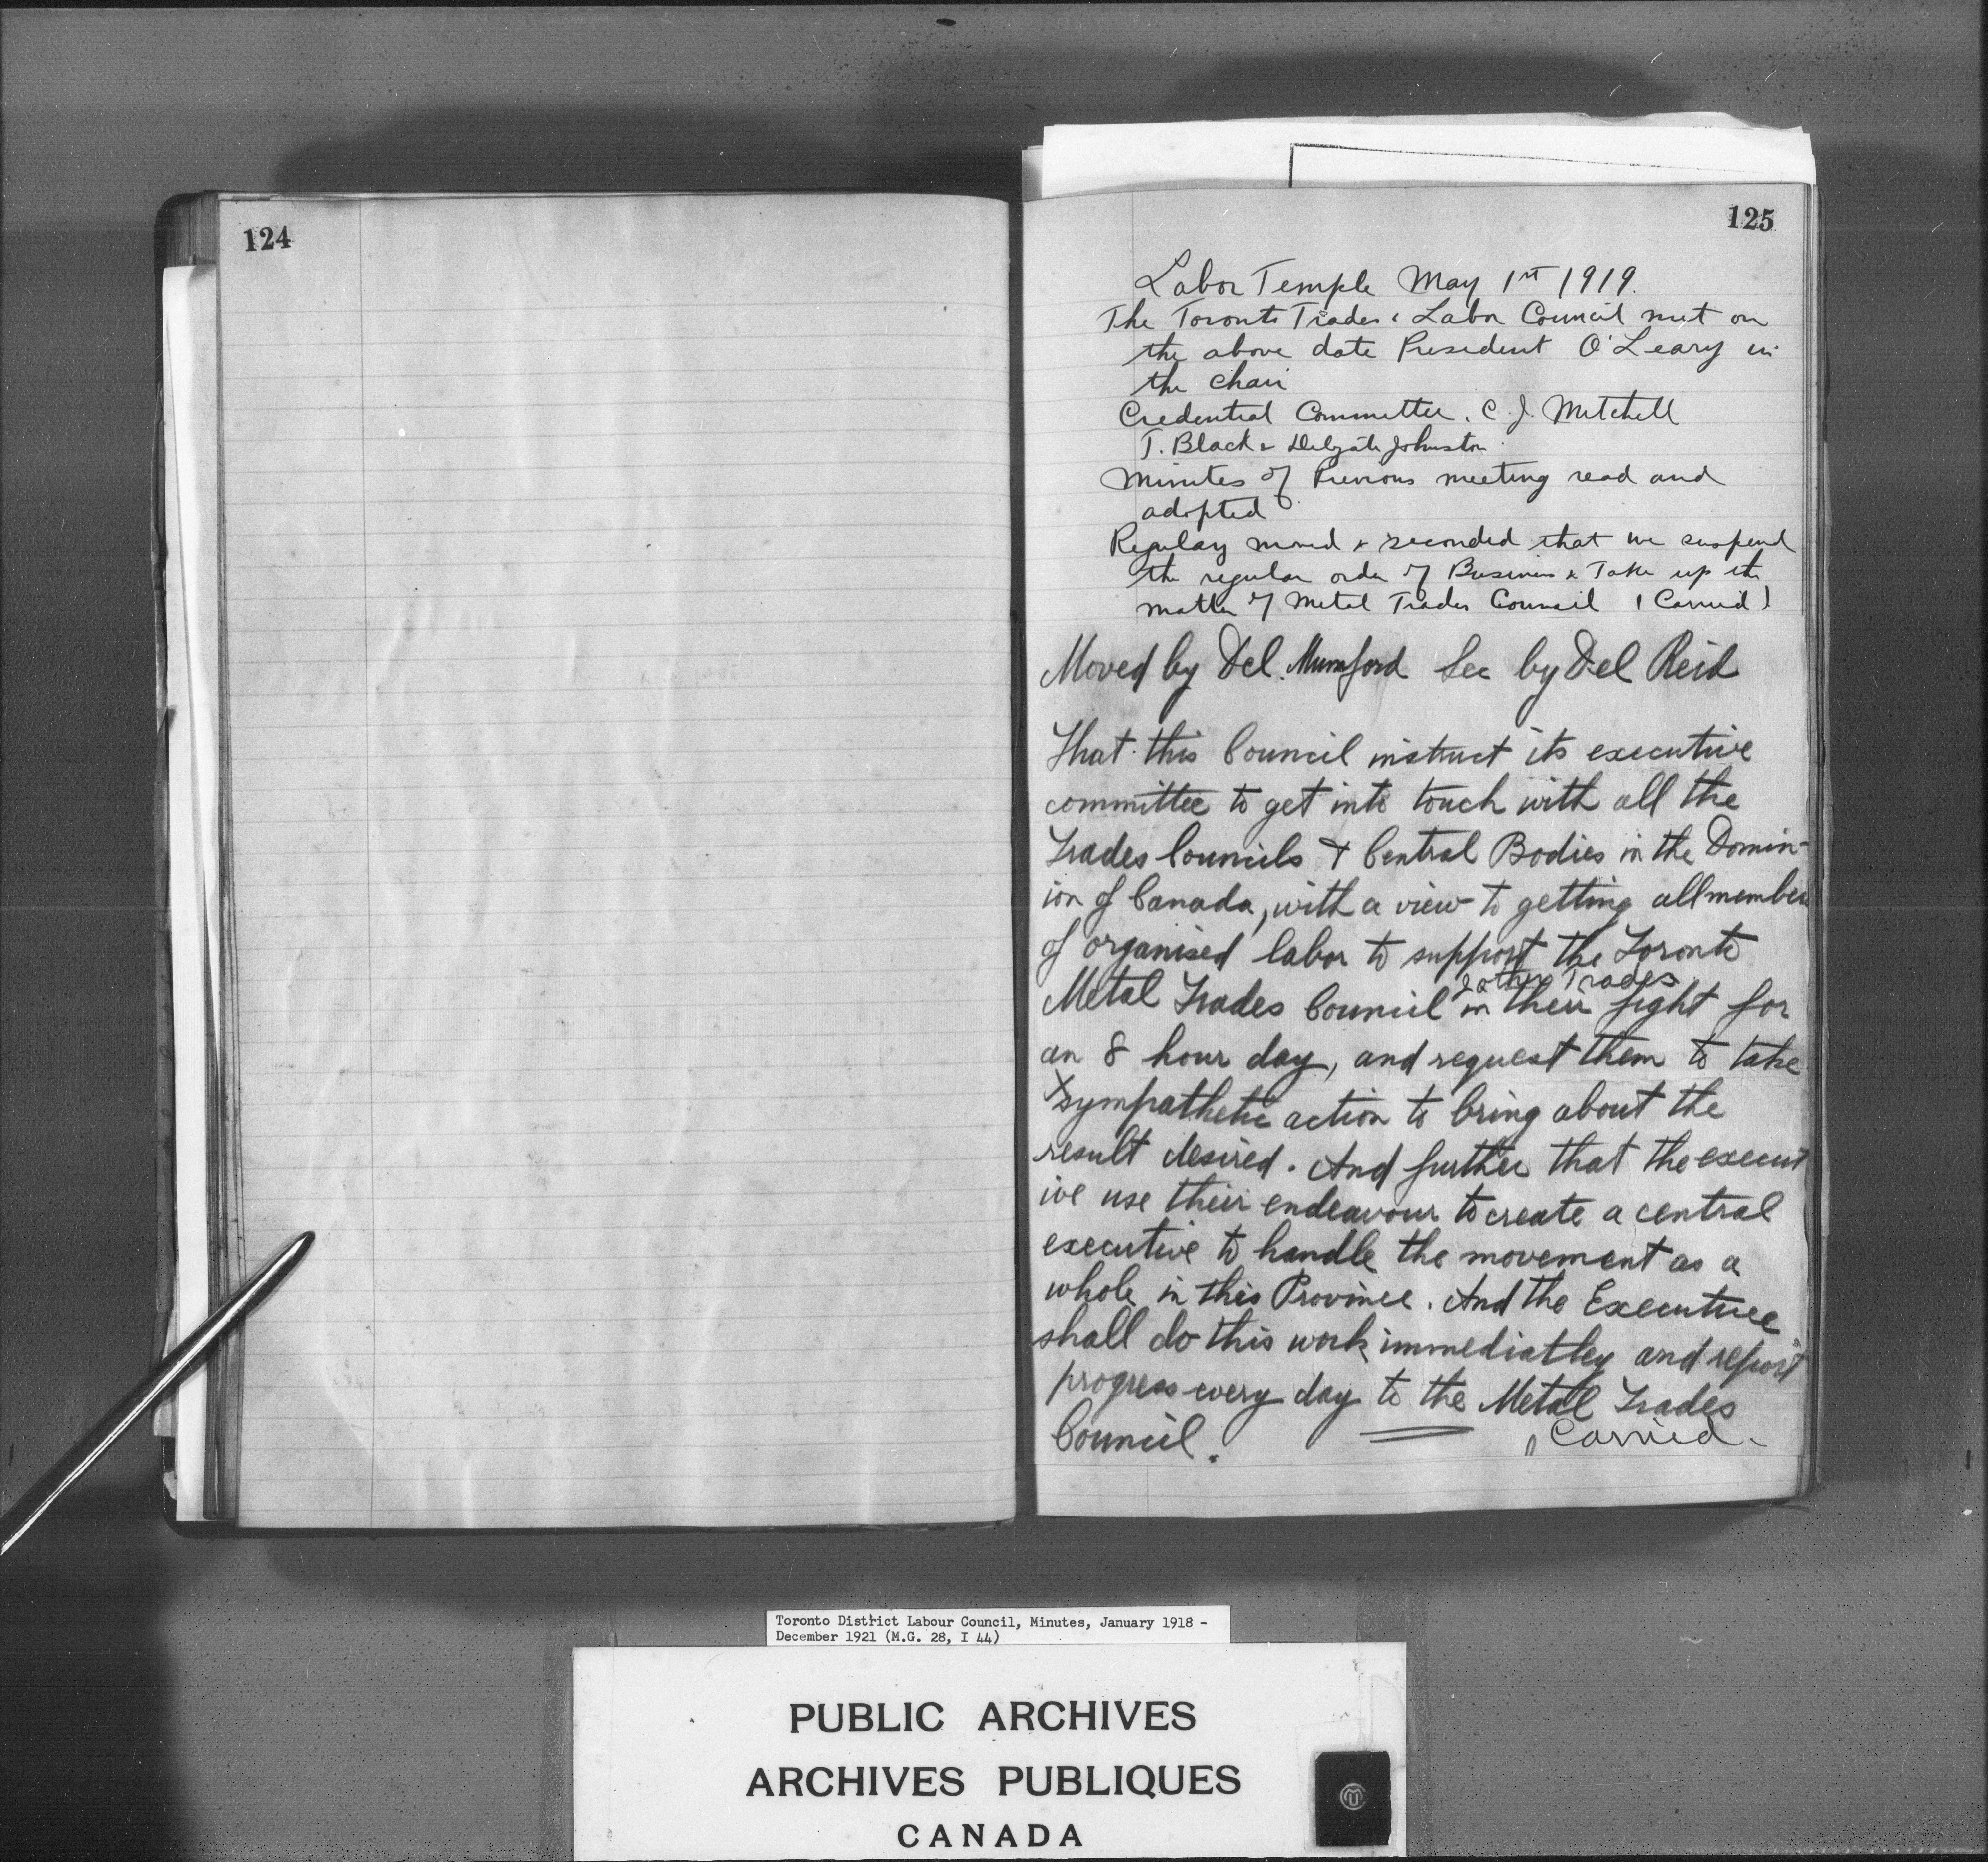 124
125
Labor Temple May 1st 1919.
The Toronto Trades & Labor Council met on
the above date President O'Leary in
the chair
Credential Committee. C. J. Mitchell
T. Black & Delegate Johnston
Minutes of Previous meeting read and
adopted
Regulay moved & seconded that we suspend
the regular order of Business & Take up the
matter of Metal Trades Council (Carried)
Moved by Del. Mumford Sec by Del Reid
That this Council instruct its executive
committee to get into touch with all the
Trades Councils & Central Bodies in the Domin-
ion of Canada, with a view to getting all members
of organised labor to support the Toronto
& other Trades
Metal Trades Council in their fight for
an 8 hour day, and request them to take
sympathetic action to bring about the
result desired. And further that the execut
ive use their endeavour to create a central
executive to handle the movement as a
whole in this Province. And the Executive
shall do this work immediatley and report
progress every day to the Metal Trades
Council. Carried.
Toronto District Labour Council, Minutes, January 1918 -
December 1921 (M.G. 28, I 44)
PUBLIC ARCHIVES
ARCHIVES PUBLIQUES
CANADA